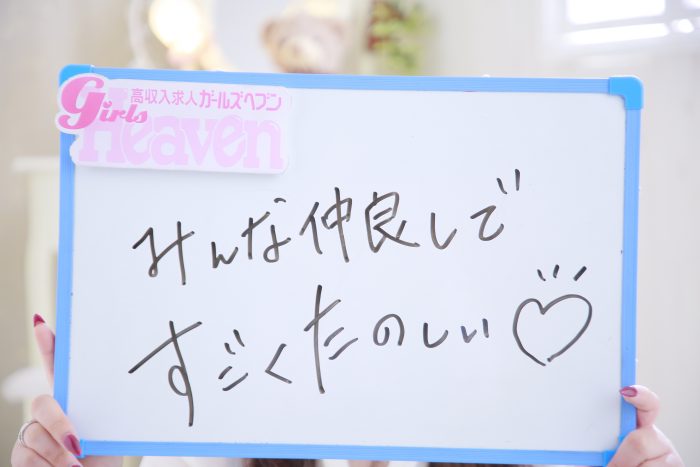 高収入求人ガールズヘブン
Girls
Heaven
みんな仲良しで
すごくたのしい♡